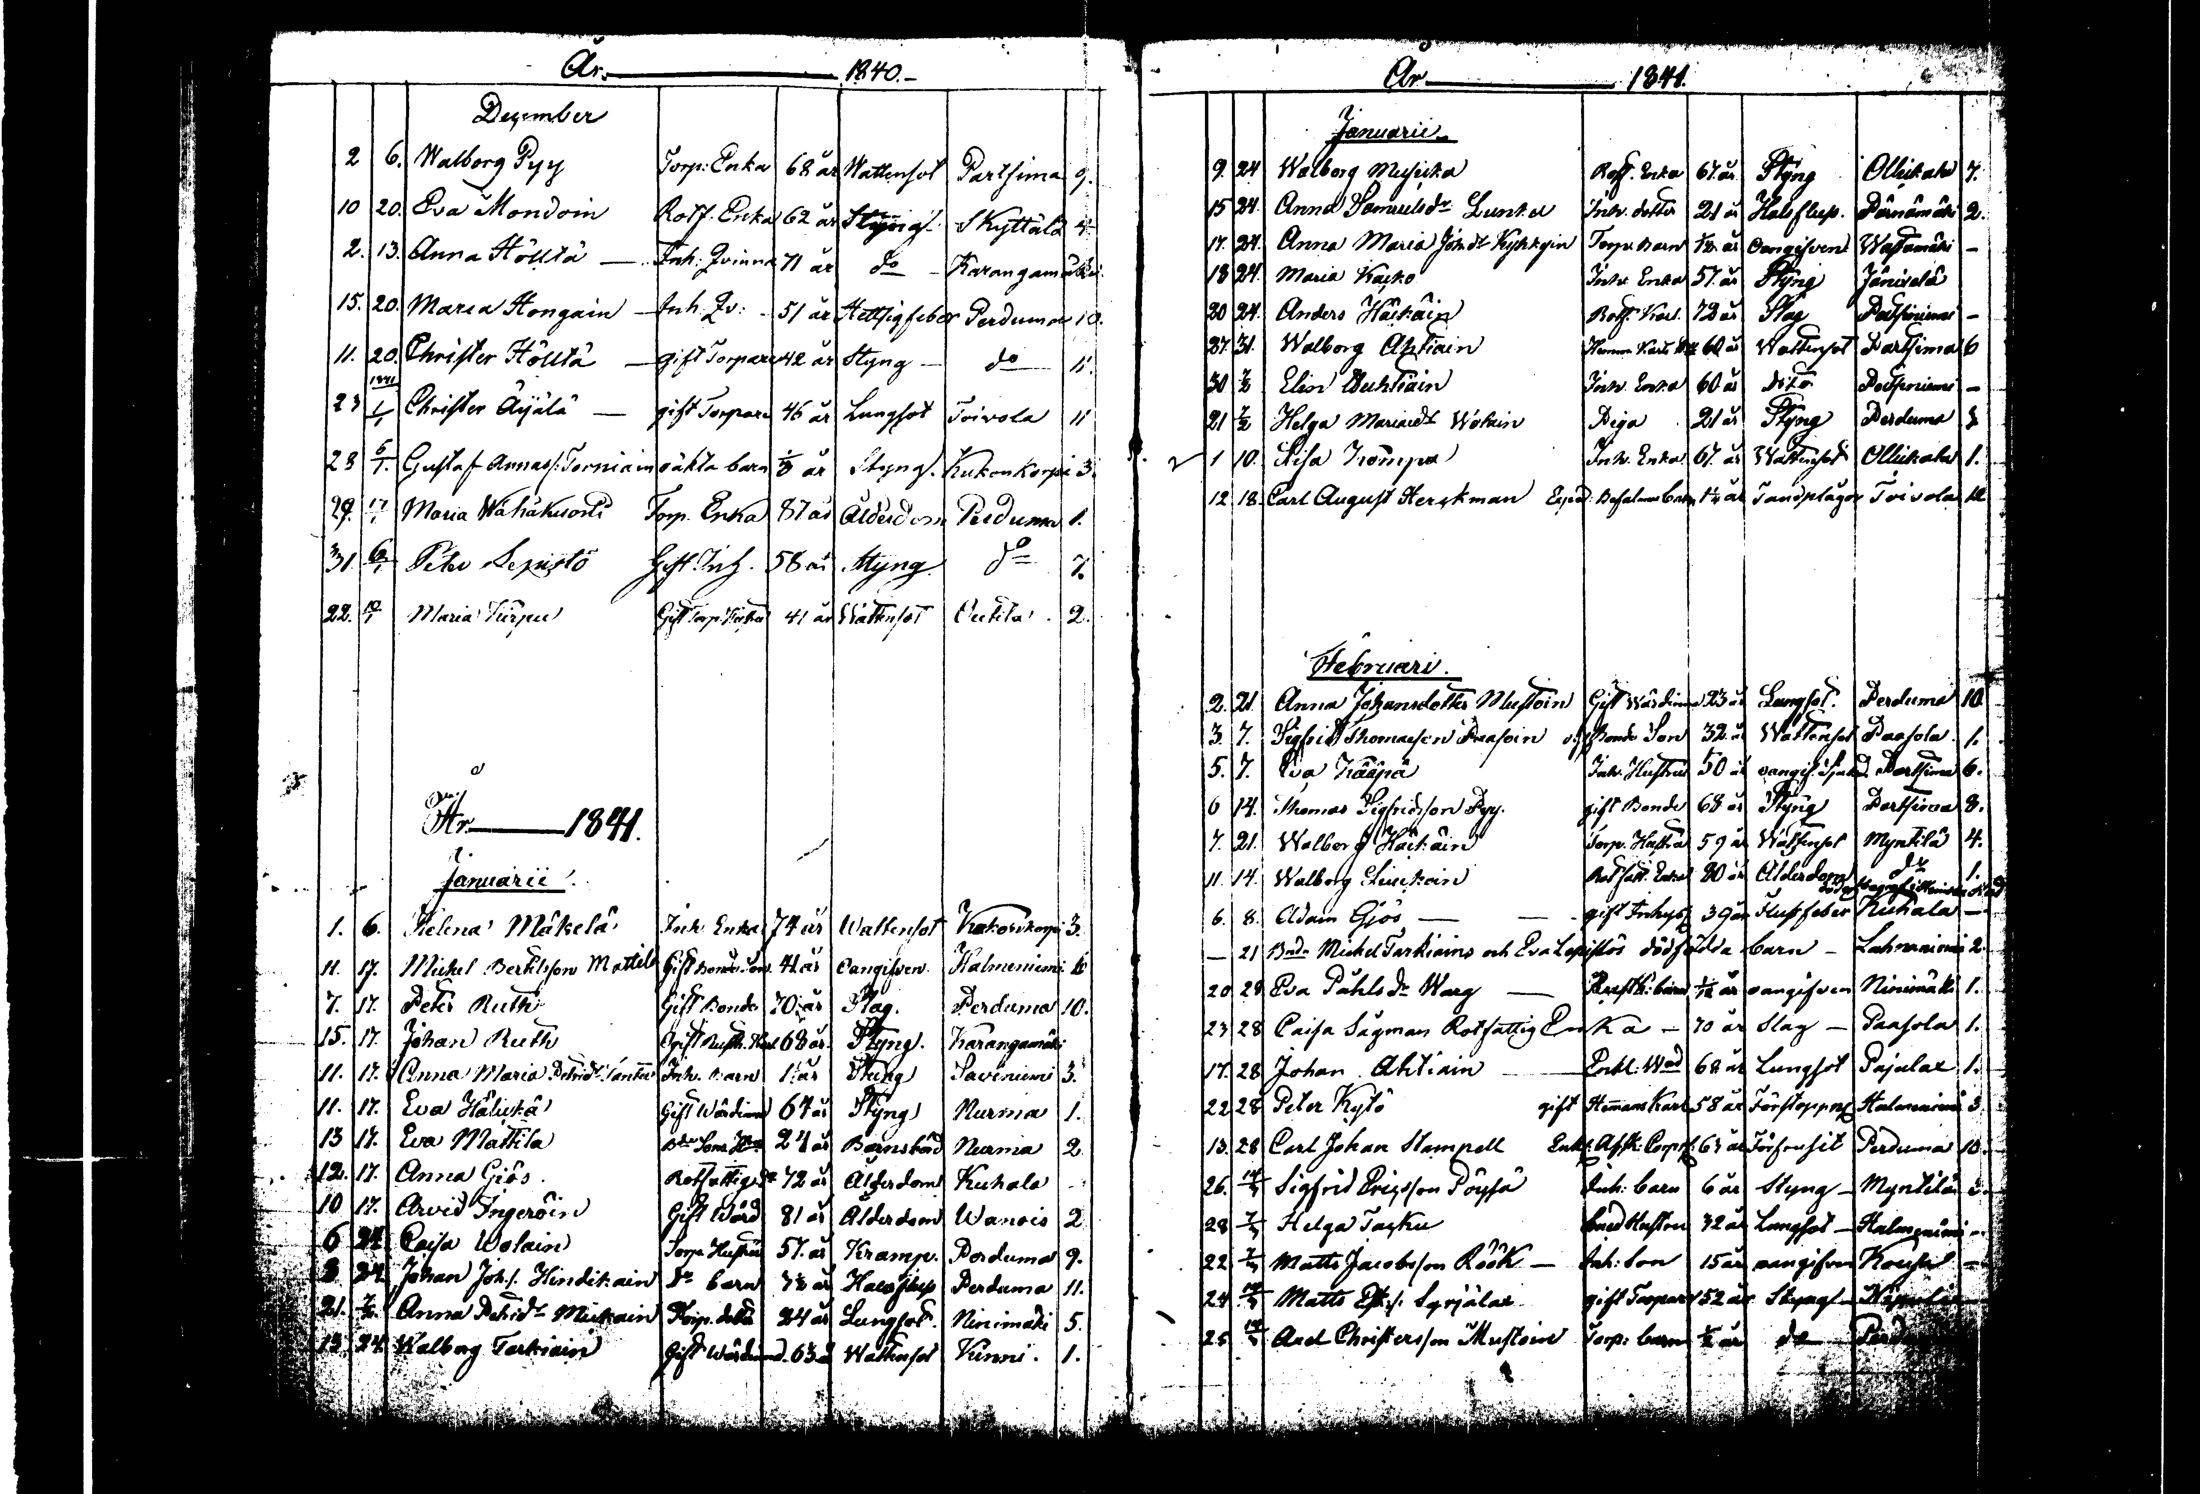 År. 1840.
December
2 6. Walborg Pyy Torp: Enka 68 år Wattensot Partsima 9.
10 20. Eva Mondoin Rotf. Enka 62 år Styng Skyttälä 4.
2. 13. Anna Hölttä Inh: Qvinna 71 år do Karangamäki
15. 20. Maria Hongain Inh. Qv: 51 år Hettsigfeber Perduma 10.
11. 20. Christer Hölttä gift Torpare 42 år Styng do 11.
1841
23 1/1 Christer Äijälä gift Torpare 46 år Lungsot Toivola 11
23 6/1. Gustaf Annas: Torniain oäkta barn 1/2 år Styng. Kukonkorpi 3.
29. 17/1 Maria Wähäkuopus Torp. Enka 87 år Ålderdom Perduma 1.
31. 6/1 Peter Lepistö Gift Inh. 58 år Styng do 7.
22. 10/1 Maria Turpu Gift Torp. Hustru 41 år Wattensot Outila 2.
År. 1841.
Januarii
1. 6. Helena Mäkelä Inh. Enka 74 år Wattensot Kakonkorpi 3.
11. 17. Michel Bertilsson Mattila Gift Bonde Son 41 år Oangifven Halmeniemi
7. 17. Peter Ruth Gift Bonde 70. år Slag. Perduma 10.
15. 17. Johan Ruth 68 år Styng. Karangamäki
11. 17. Anna Maria Petridr Inh. Barn 1 år Styng Saviniemi 3.
11. 17. Eva Häliekä Gift Wärdinna 67 år Styng Nurma 1.
13 17. Eva Mattila 24 år Barnsbörd Nurma 2
12. 17. Anna Giös. Rotfattig 72 år Ålderdom Kuhala
10 17. Arvid Ingeröin Gift Wärd 81 år Ålderdom Wanois 2
6 24. Caisa Wolain Torp Hustru 57. år Kramp. Perduma 9.
8 24 Johan Joh:s. Hindikain do barn år Halsflus Perduma 11.
21. 7/2 Anna Petridr Miekain Torp. dotter 24 år Lungsot. Ninimäki 5.
13 24. Walborg Tarkiain Gift Wärdinna 63 år Wattensot Kinni. 1.
År 1841.
Januarii
9. 24 Walborg Musicka Rotf. Enka 67. år Styng Ollikala 7.
15 24. Anna Samuelsdr Lunkd Inh. dotter 21 år Halsfluss. Pärnämäki 2.
17. 24. Anna Maria Johdr Kykkyin Torp. Barn år Oangifven Wattamäki
18 24. Maria Kacko Inh. Enka 57. år Styng Jäniselä
20 24. Anders Häckäin Rotf. Karl. 72 år Slag Pätsiniemi
27. 31. Walborg Ahtiain 60 år Wattensot Partsima 6
30 7/2 Elin Wuhtiain Inh. Enka 60 år dito
21 7/2 Helga Mariædr Wokin Piga 21 år Styng Perduma
1 10. Lisa Kompa Inh. Enka 67. år Wattensot Ollikala 1.
12 18. Carl August Herckman barn år Tandplågor Toivola
Februari.
2. 21. Anna Johansdotter Mustoin Gift Wärdinna 23 år Lungsot. Perduma 10
3. 7. Sigfrid Thomasson Paasoin Bonde Son 32 år Wattensot Paasola 1.
5. 7. Eva Kääpä Inh. Hustru 50 år oangif. Sjukd. Partsima 6.
6 14. Thomas Sigfridsson Pyy. gift Bonde 68 år Styng Partsima 8.
7. 21. Walborg Häckäin Torp. Hustru 59 år Wattensot Myntilä 4.
11. 14. Walborg Liuckoin Rotfatt. Enka 80 år Ålderdom do 1.
6. 8. Adam Gjös gift Inhys 39 år Flussfeber Kuhala
21 Bnde Michel Tarkiains och Eva Lepistös dödfödda barn Lahnaniemi 2.
20 28 Eva Påhlsdr Warg barn 1/12 år oangifven Ninimäki 1.
23 28 Caisa Sågman Rotfattig Enka 70 år Slag Paasola 1.
17. 28 Johan Ahtiain 68 år Lungsot Pajulax 1.
22 28 Peter Kytö gift Hemmans Karl 58 år Förstoppng Halmeniemi 3.
13. 28 Carl Johan Stampell 63 år Perduma 10.
26. 14/3 Sigfrid Ericsson Pöysä Inh: barn 6 år Styng Myntilä
28 7/3 Helga Tasku Hustru 72 år Lungsot Halmeniemi
22 7/3 Matts Jacobsson Röök Inh: Son 15 år oangifven
24 14/3 Matts Syrjälax gift Torpare 52 år Styng
25 14/3 Axel Christersson Mustoin Torp: barn år do